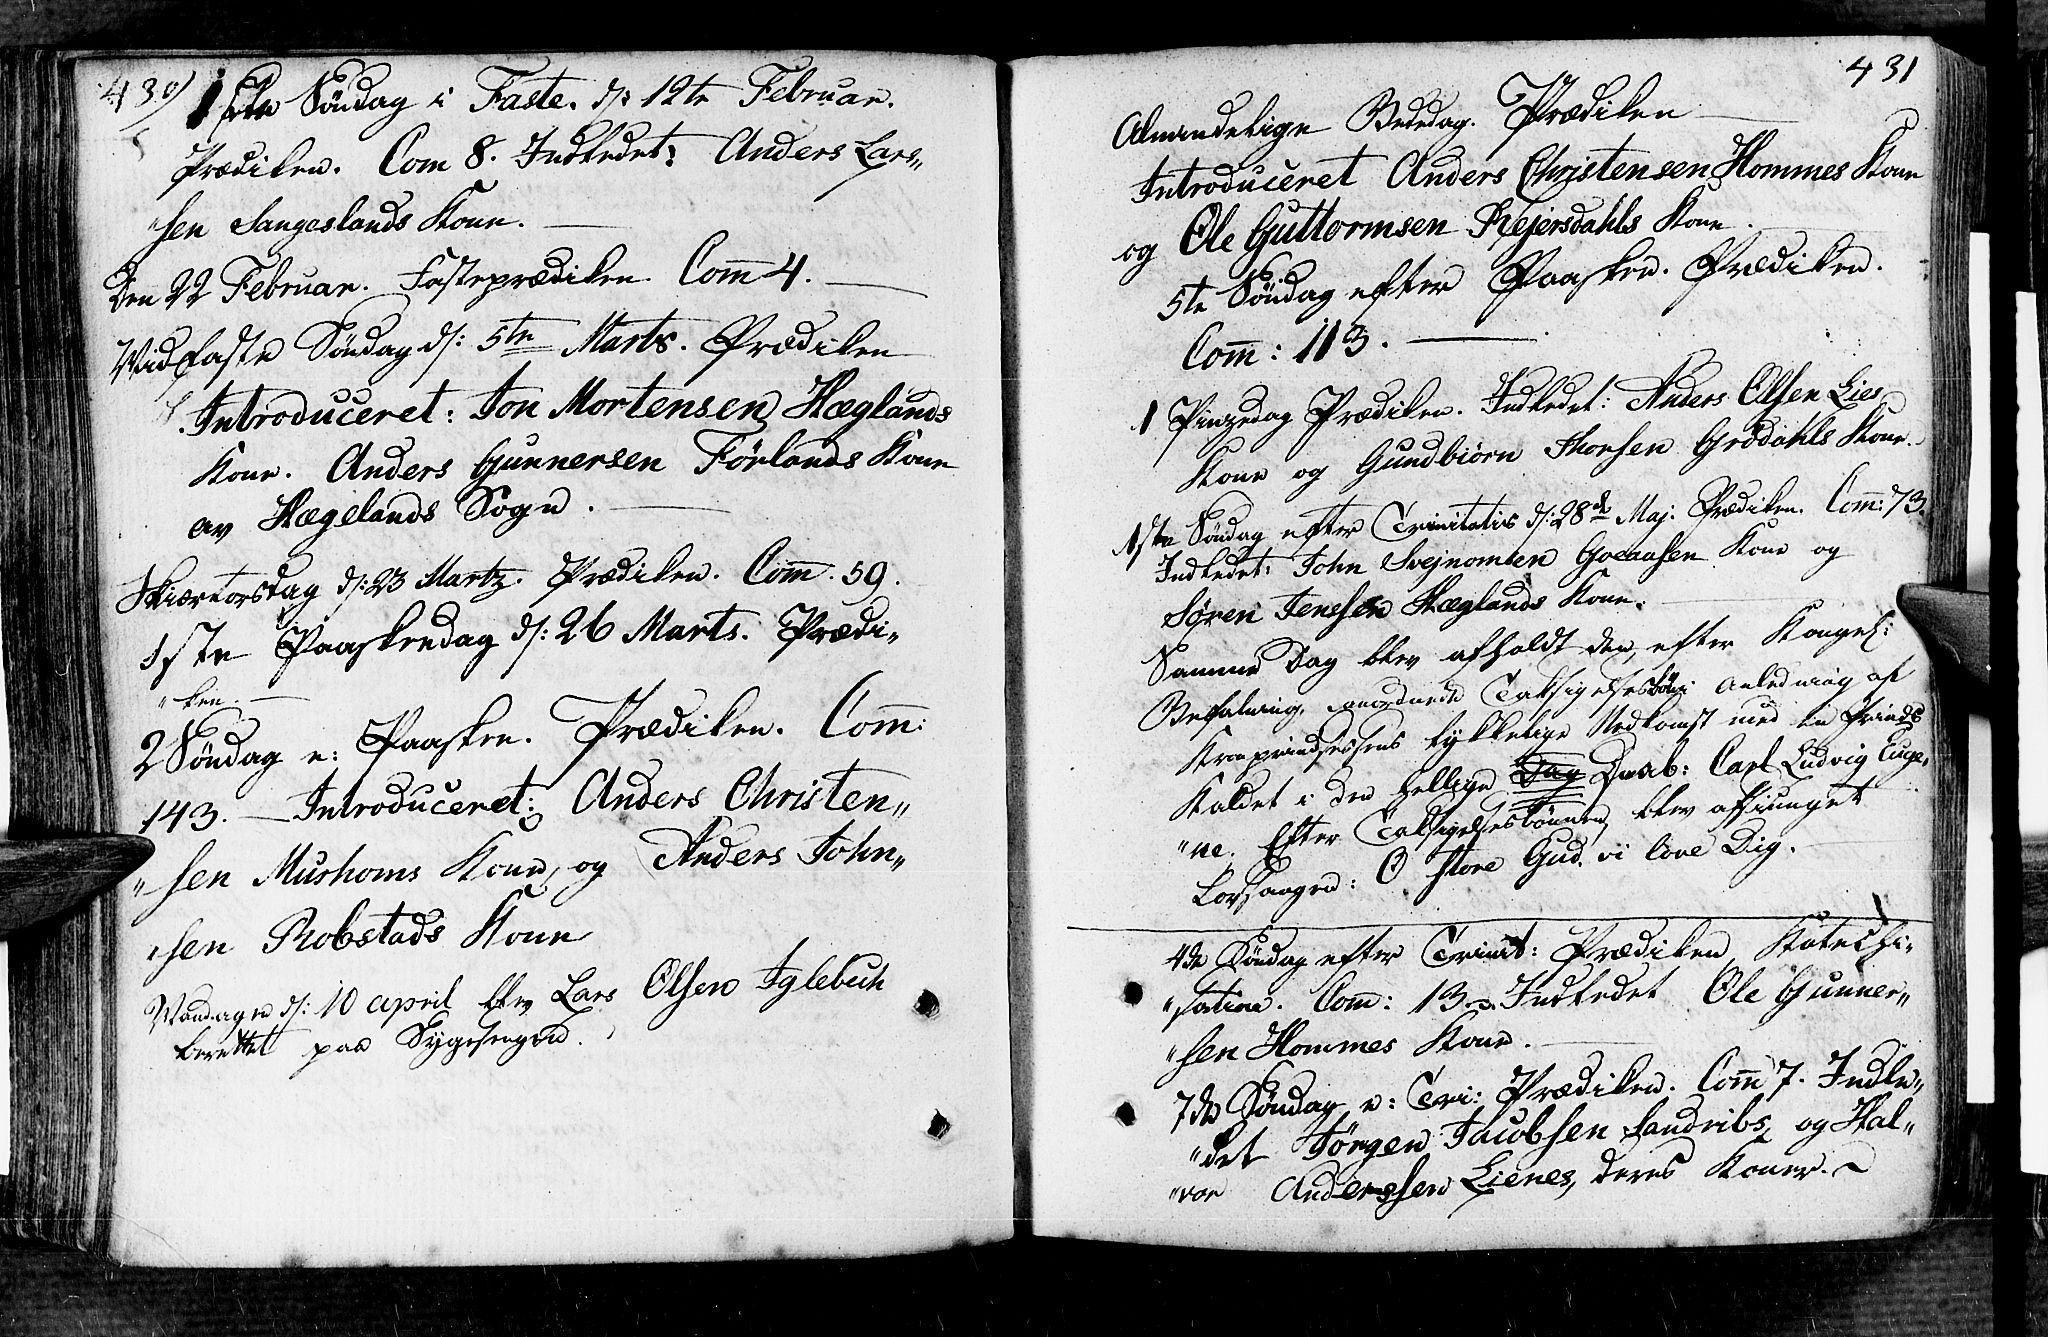 430)
1ste Söndag i Faste. d: 12te Februar.
Prædiken. Com 8. Indledet: Anders Lars„
„sen Sangeslands Kone.
Den 22 Februar. Fasteprædiken Com̄ 4.
Midfaste Söndag d: 5te Marts. Prædiken
Introduceret: Jon Mortensen Hæglands
Kone. Anders Gunnersen Förlands Kone
av Hægelands Sogn.
Skiærtorsdag d: 23 Martz. Prædiken. Com̄. 59.
1ste Paaskedag d: 26 Marts. Prædi„
„ken.
2 Söndag e: Paasken. Prædiken. Com̄:
143. — Introduceret: Anders Christen„
„sen Mushoms Kone, og Anders John„
„sen Robstads Kone
Mandagen d: 10 april blev Lars Olsen Iglebech
berettet paa Sygesengen.
431
Almindelige Bededag. Prædiken
Introduceret Anders Christensen Hommes Kone
og Ole Guttormsen Rejersdahls Kone.
5te Söndag efter Paasken. Prædiken.
Com̄: 113.
1 Pinzedag Prædiken. Indledet: Anders Olsen Lies
Kone og Gundbiörn Thorsen Grödahls Kone.
1ste Söndag efter Trinitatis d: 28de Maj. Prædiken. Com̄: 73.
Indledet: John Svejnomsen Kone og
Sören Jensen Hæglands Kone.
Samme Dag blev afholdt den, efter Kongel:
Befalning, anordnede Taksigelsesbön i Anledning af
Kronprindsessens lykkelige Nedkomst med en Prinds
Kaldet i den hellige Dag Daab: Carl Ludvig Euge„
„ne. Efter Taksigelsesbönnen, blev afsiunget
Lovsangen: O store Gud vi love Dig.
4de Söndag efter Trinit: Prædiken, Katechi„
„sation. Com̄: 13. Indledet Ole Gunner„
„sen Hommes Kone.
7de Söndag e: Tri: Prædiken. Com̄ 7. Indle„
„det Jörgen Jacobsen Sandribs, og Hal„
„vor Anderssen Lienes, deres Koner.